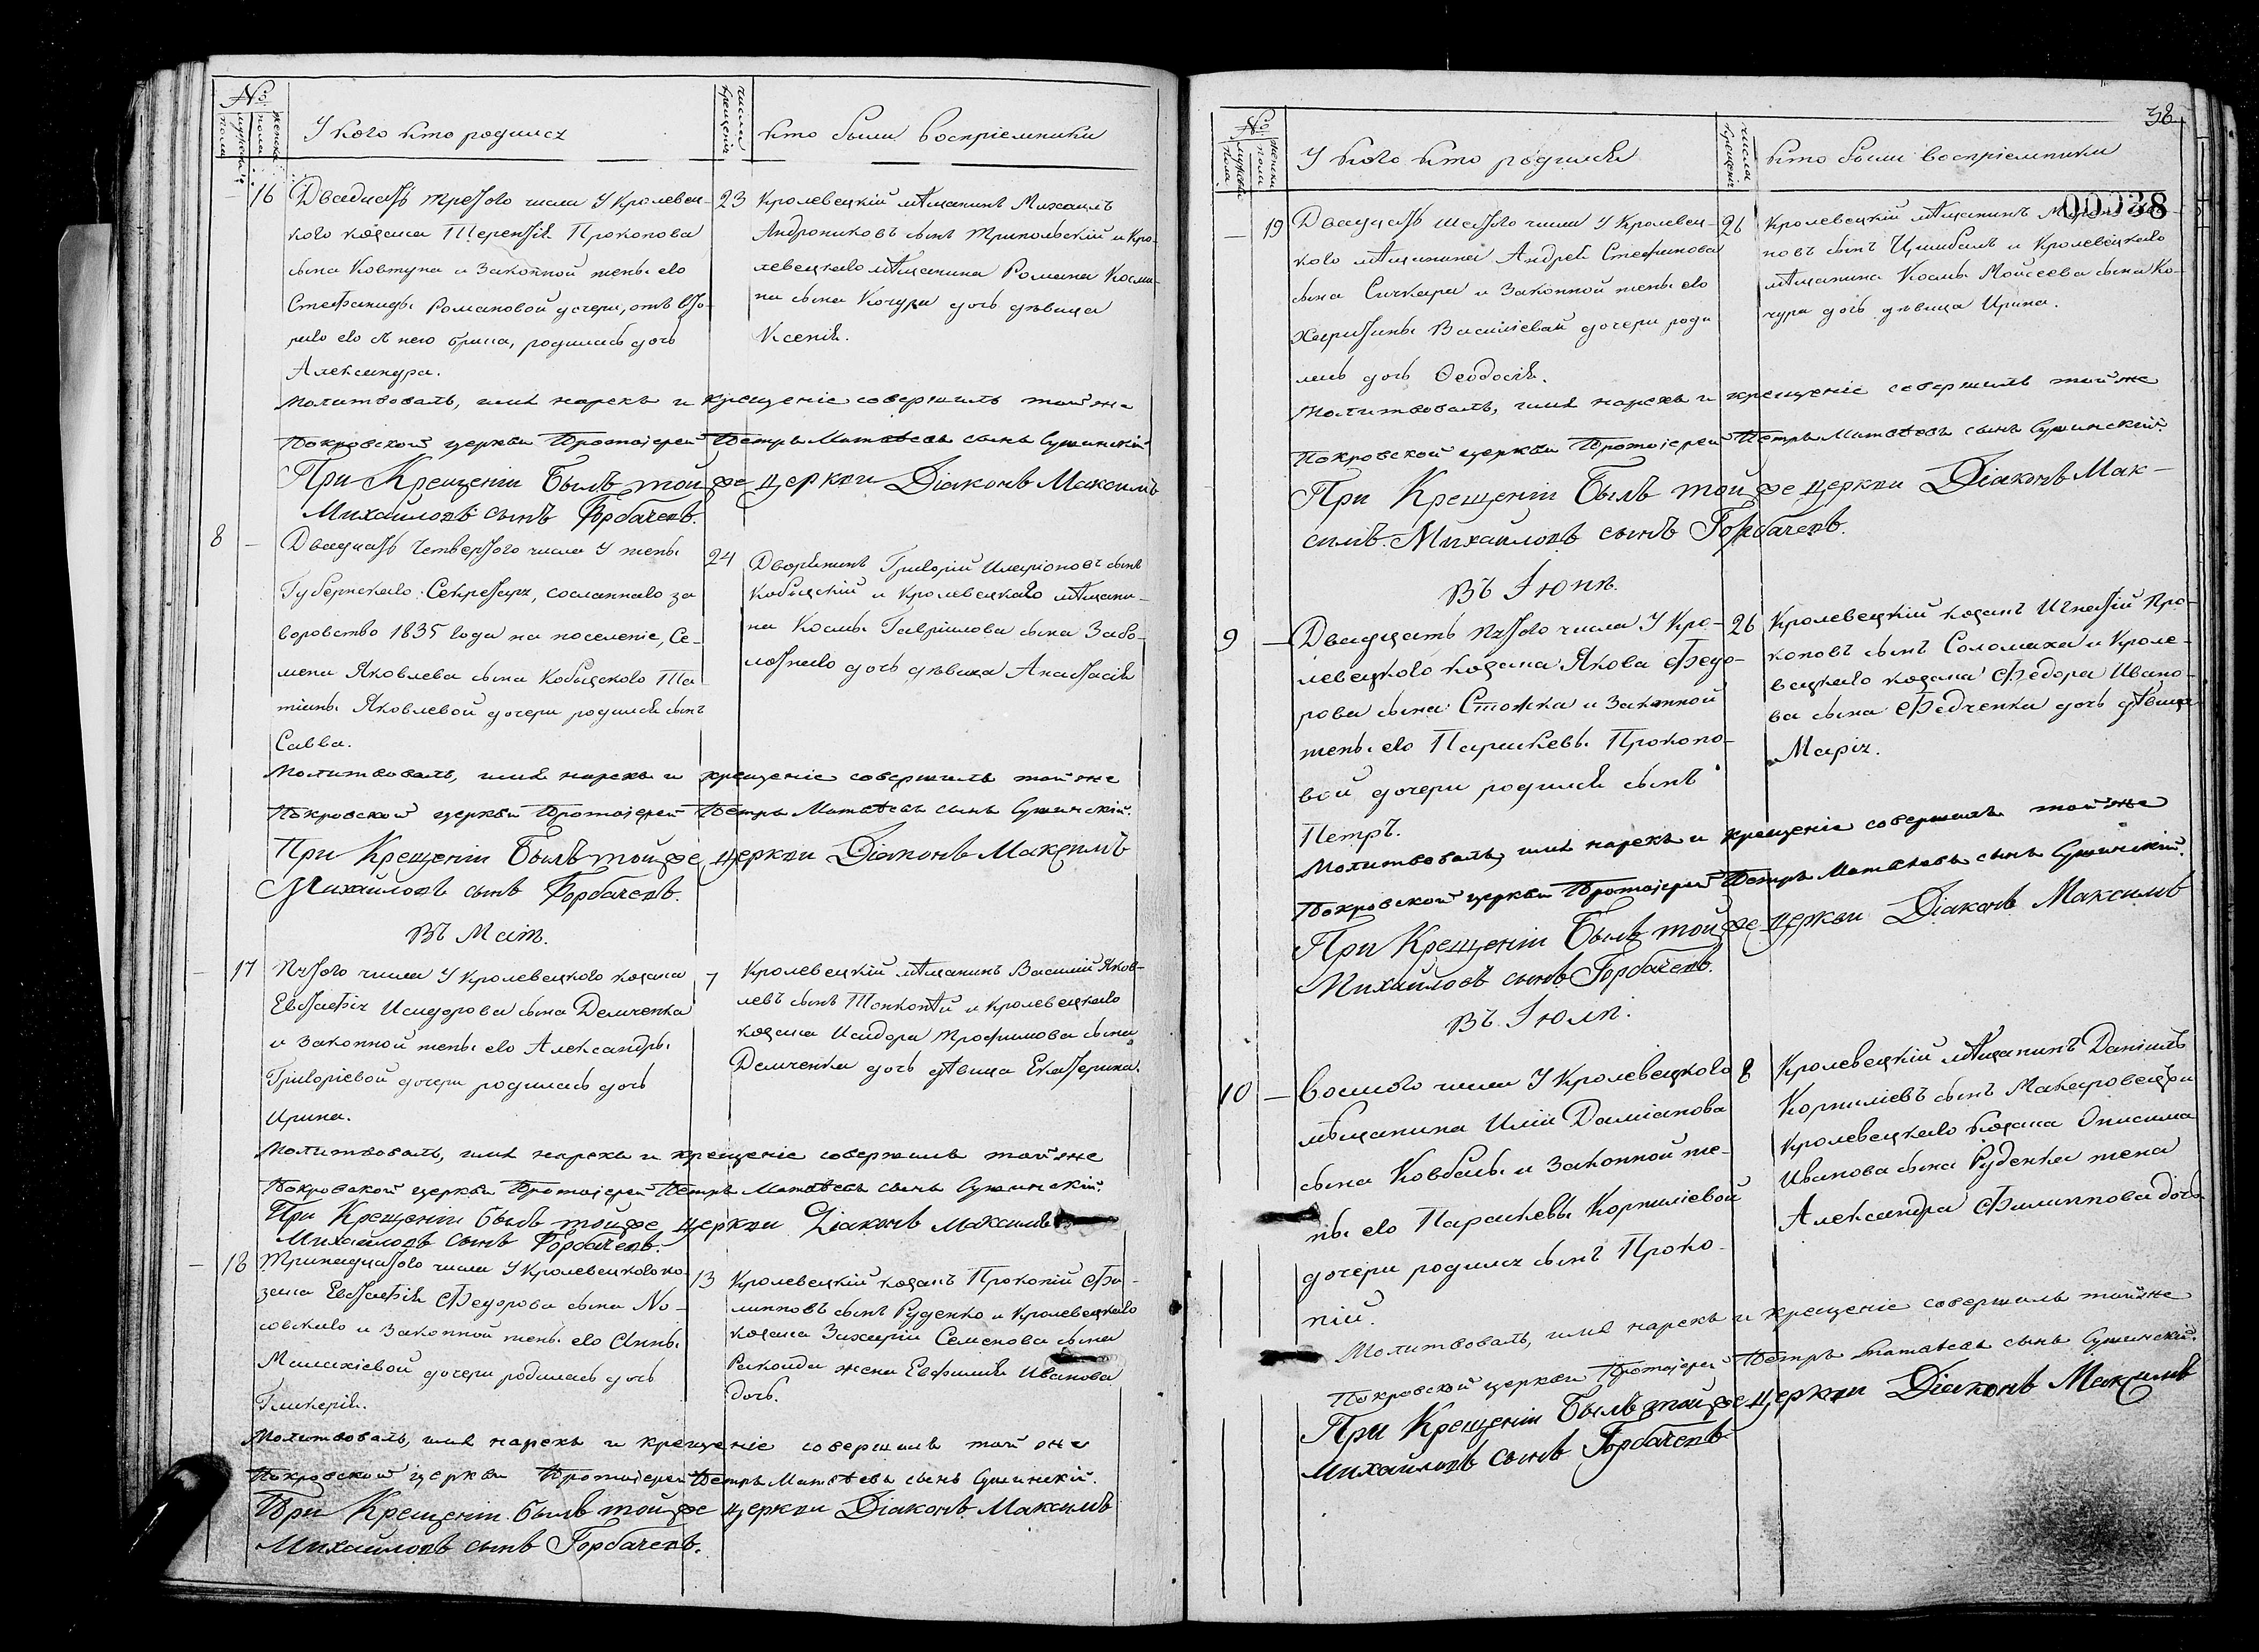 №
мужеска пола
женска пола
У кого кто родился
число крещенія
кто были воспріемники
16
Двадцать третьяго числа У Кролевец-
кого козака Терентія Прокопова
сына Ковтуна и Законной жены его
Стефаниды Романовой дочери, отъ вто-
раго его съ нею брака, родилась дочь
Александра.
23
Кролевецкій мѣщанинъ Михаилъ
Андрониковъ сынъ Трипольскій и Кро-
левецкаго мѣщанина Романа Косми-
на сына Кочура дочь дѣвица
Ксенія.
Молитвовалъ, имя нарекъ и крещеніе совершилъ той же
Покровской церкви Протоіерей Петръ Матвѣевъ сынъ Сушинскій.
При Крещеніи былъ той же церкви Діаконъ Максимъ
Михайловъ сынъ Горбачевъ.
8
Двадцать Четвертого числа У жены
Губернскаго Секретаря, сосланнаго за
воровство 1835 года на поселеніе, Се-
мена Яковлева сына Кобыцкого Та-
тіаны Яковлевой дочери родился сынъ
Савва.
24
Дворянинъ Григорій Иларіоновъ сынъ
Кобыцкій и Кролевецкаго мѣщани-
на Космы Гавріилова сына Забо-
лотнаго дочь дѣвица Анастасія
Молитвовалъ, имя нарекъ и крещеніе совершилъ той же
Покровской церкви Протоіерей Петръ Матвѣевъ сынъ Сушинскій.
При Крещеніи былъ той же церкви Діаконъ Максимъ
Михайловъ сынъ Горбачевъ.
Въ Маіѣ.
17
Пятого числа У Кролевецкого козака
Евстафія Исидорова сына Демченка
и Законной жены его Александры
Григоріевой дочери родилась дочь
Ирина.
7
Кролевецкій мѣщанинъ Василій Яков-
левъ сынъ Тонконѣй и Кролевецкаго
козака Исидора Трофимова сына
Демченка дочь дѣвица Екатерина.
Молитвовалъ, имя нарекъ и крещеніе совершилъ той же
Покровской церкви Протоіерей Петръ Матвѣевъ сынъ Сушинскій.
При Крещеніи былъ той же церкви Діаконъ Максимъ
Михайловъ сынъ Горбачевъ.
18
Тринадцатого числа У Кролевецкого ко-
зака Евстафія Федорова сына Но-
совскаго и Законной жены его Анны
Малахіевой дочери родилась дочь
Гликерія.
13
Кролевецкій козакъ Прокопій Фи-
липповъ сынъ Руденко и Кролевецкаго
козака Захарія Семенова сына
жена Евфимія Иванова
дочь.
Молитвовалъ, имя нарекъ и крещеніе совершилъ той же
Покровской церкви Протоіерей Петръ Матвѣевъ сынъ Сушинскій.
При Крещеніи былъ той же церкви Діаконъ Максимъ
Михайловъ сынъ Горбачевъ.
38
00038
№
мужеска пола
женска пола
У кого кто родился
число крещенія
кто были воспріемники
19
Двадцать шестого числа У Кролевец-
кого мѣщанина Андрея Стефанова
сына Сичкаря и Законной жены его
Христины Василіевой дочери роди
лась дочь Ѳеодосія.
26
Кролевецкій мѣщанинъ
новъ сынъ Цимбалъ и Кролевецкаго
мѣщанина Космы Моисеева сына Ко-
чура дочь дѣвица Ирина.
Молитвовалъ, имя нарекъ и крещеніе совершилъ той же
Покровской церкви Протоіерей Петръ Матвѣевъ сынъ Сушинскій.
При Крещеніи былъ той же церкви Діаконъ Мак-
симъ Михайловъ сынъ Горбачевъ.
Въ Іюнѣ.
9
Двадцать пятого числа У Кро-
левецкого козака Якова Федо-
рова сына Стожка и Законной
жены его Параскевы Прокопо-
вой дочери родился сынъ
Петръ.
26
Кролевецкій козакъ Игнатій Про-
коповъ сынъ Соломаха и Кроле-
вецкаго козака Федора Ивано-
ва сына Федченка дочь дѣвица
Марія.
Молитвовалъ, имя нарекъ и крещеніе совершилъ той же
Покровской церкви Протоіерей Петръ Матвѣевъ сынъ Сушинскій.
При Крещеніи былъ той же церкви Діаконъ Максимъ
Михайловъ сынъ Горбачевъ.
Въ Іюлѣ.
10
Восмого числа У Кролевецкого
мѣщанина Иліи Даміанова
сына Ковбасы и Законной же-
ны его Параскевы Корниліевой
дочери родился сынъ Проко-
пій.
8
Кролевецкій мѣщанинъ Даніилъ
Корниліевъ сынъ Макаровецъ и
Кролевецкаго козака Онисима
Иванова сына Руденка жена
Александра Филиппова дочь
Молитвовалъ, имя нарекъ и крещеніе совершилъ той же
Покровской церкви Протоіерей Петръ Матвѣевъ сынъ Сушинскій.
При Крещеніи былъ той же церкви Діаконъ Максимъ
Михайловъ сынъ Горбачевъ